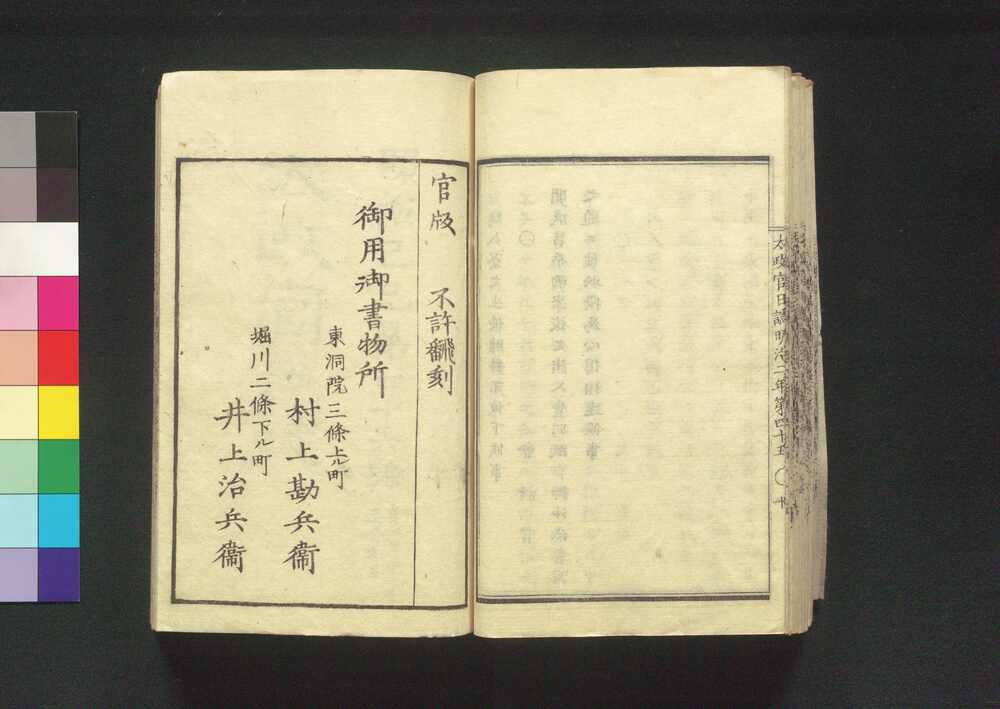 太政官日誌明治二年第四十五
官版 不許飜刻
御用御書物所
東洞院三條上ル町
村上勘兵衞
堀川二條下ル町
井上治兵衞